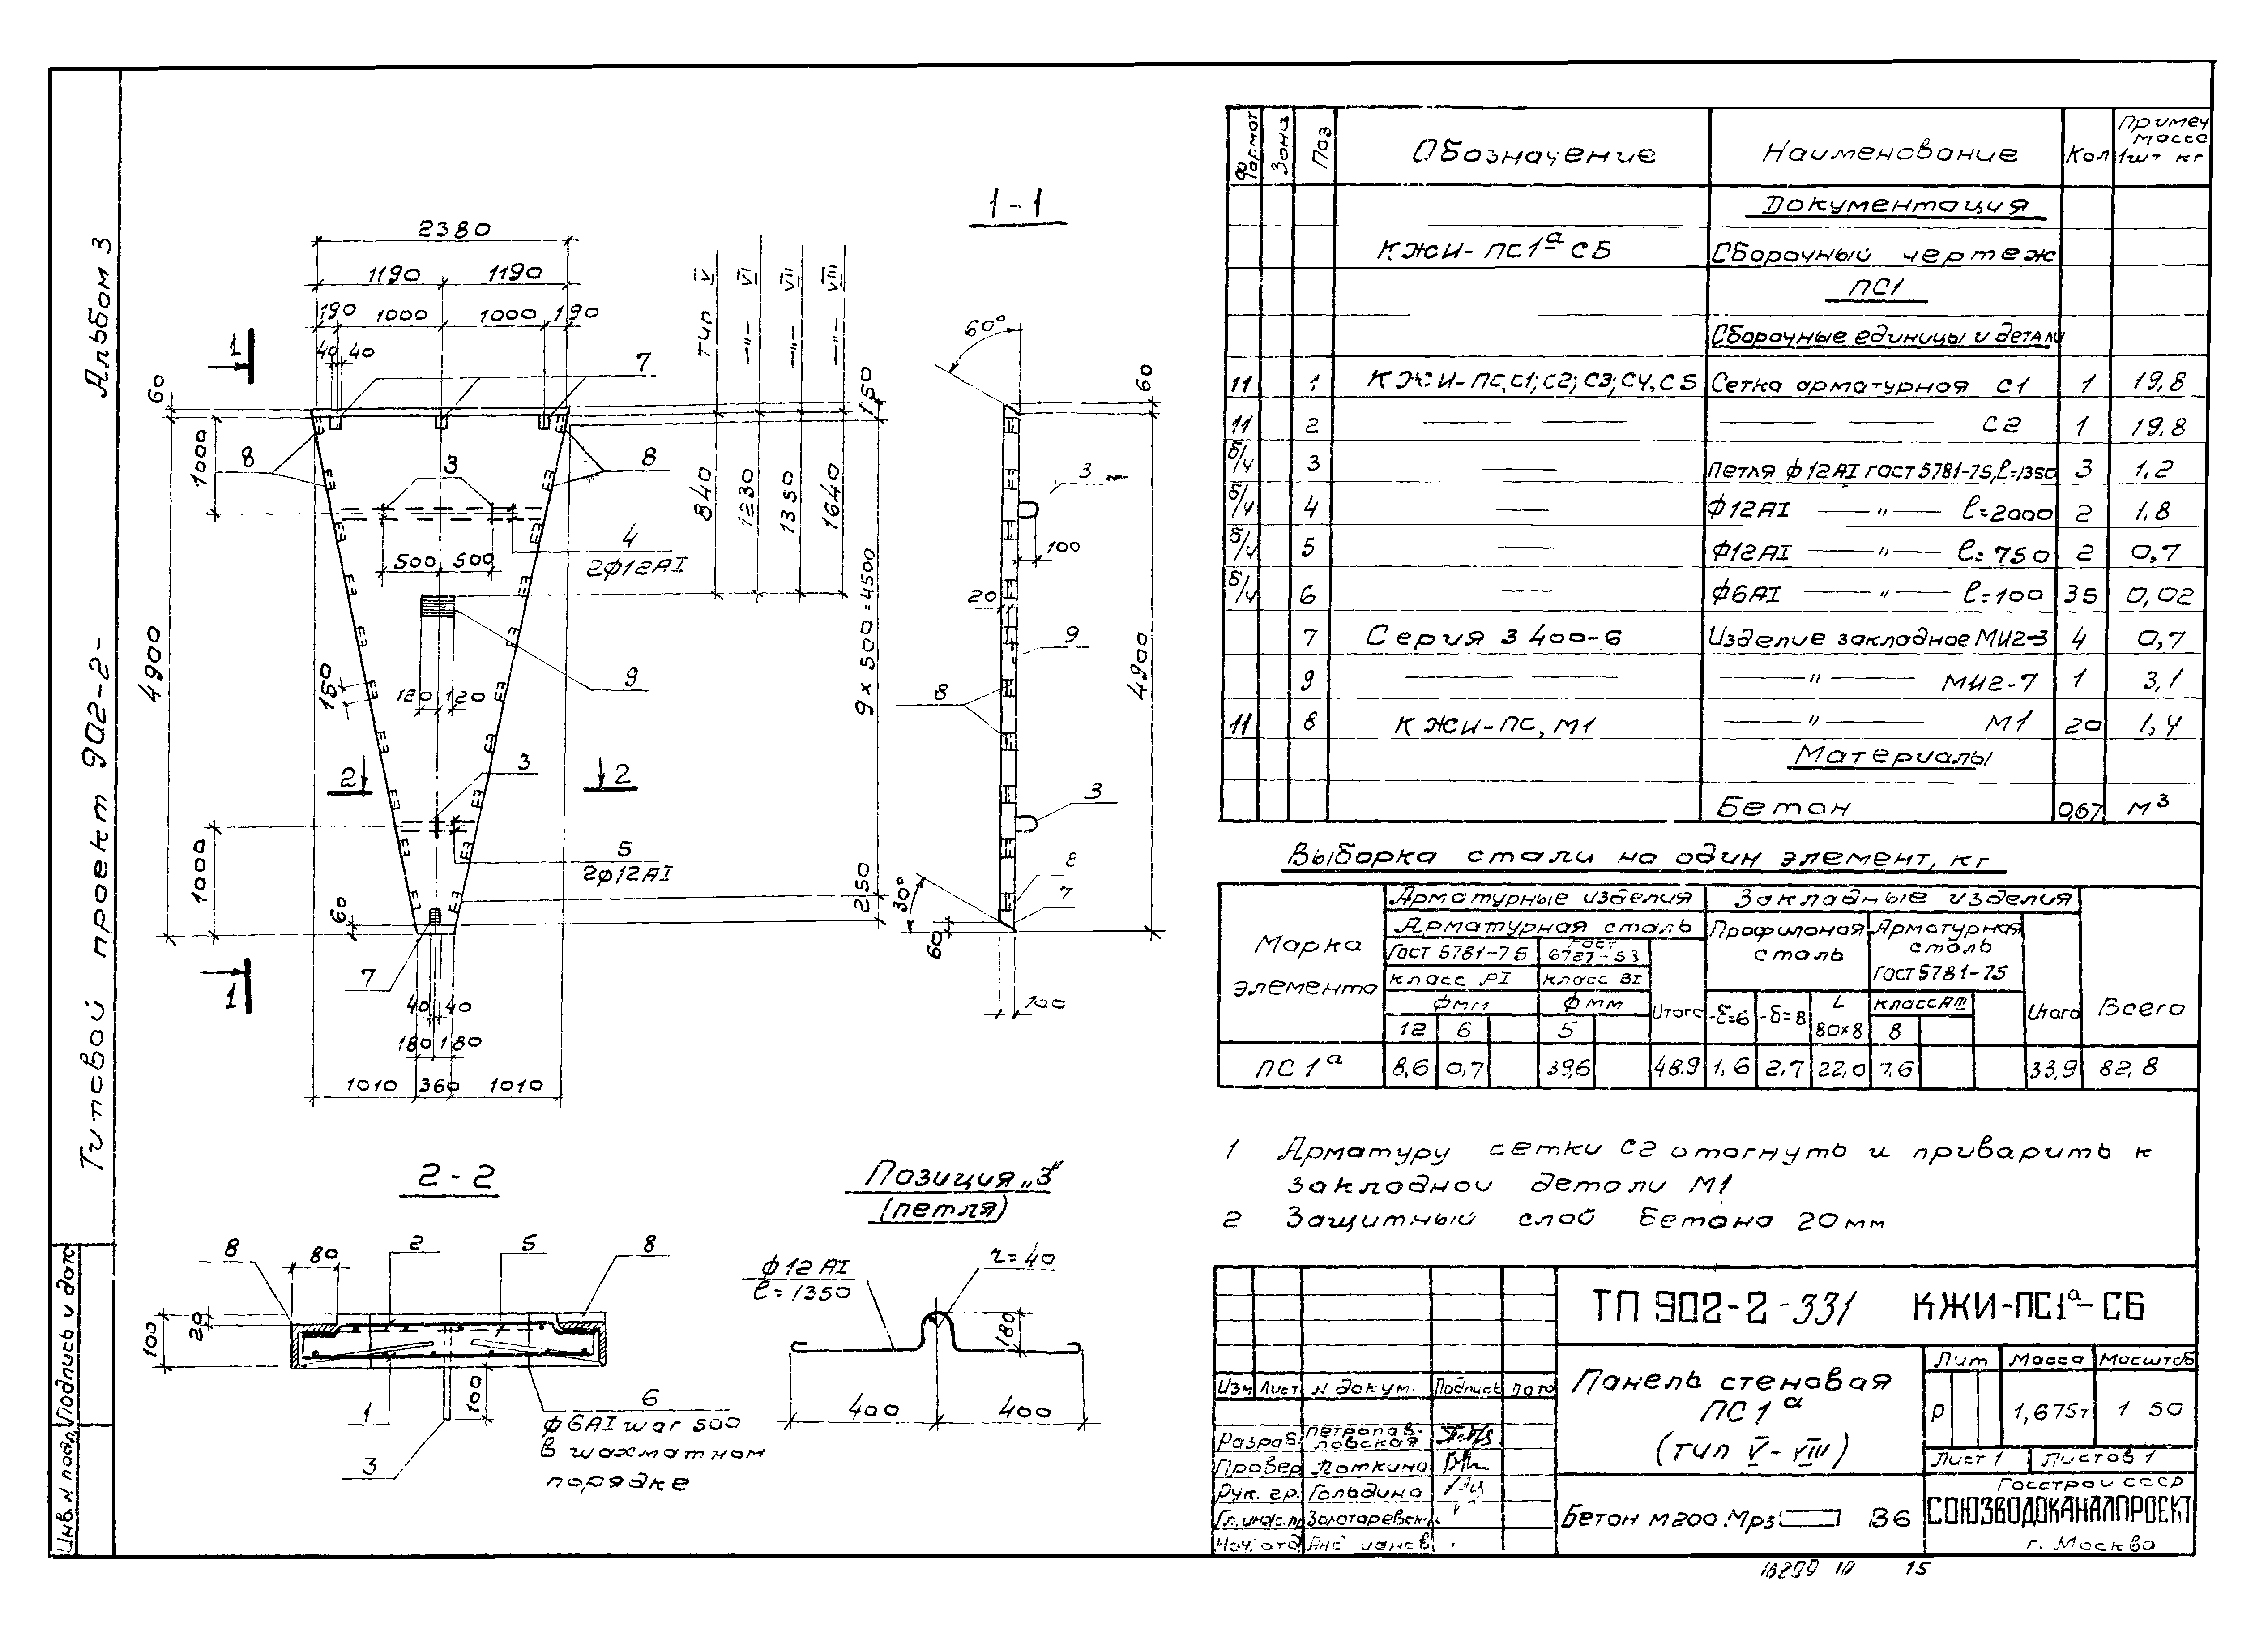 Альбом 3
Типовой проект 902-2-
Инв. N подл. Подпись и дата
2380
1190 1190
190 1000 1000 190
40 40
7
1
60
1000
8 3 8
4
2ф12АI
500 500
4900
150
120 120
9
3
2 2
1000
5
2ф12АI
60
7
1
40 40
180 180
1010 360 1010
тип V
—"— VI
—"— VII
—"— VIII
840
1230
1350
1640
150
9 х 500 = 4500
250
1-1
60°
60
3
100
20
9
8
4900
3
8
7
30°
60
100
2-2
8 80 2 5 8
20
100
100
1
3
6
ф6АI шаг 500
в шахматном
порядке
Позиция „3"
(петля)
ф12АI
ℓ=1350
r=40
180
400 400
Формат Зона Поз Обозначение Наименование Кол Примеч масса 1шт кг
Документация
КЖИ-ПС1а СБ Сборочный чертеж
ПС1
Сборочные единицы и детали
11 1 КЖИ-ПС,С1;С2;С3;С4,С5 Сетка арматурная С1 1 19,8
11 2 — — — — — С2 1 19,8
б/ч 3 — Петля ф12АI ГОСТ5781-75,ℓ=1350 3 1,2
б/ч 4 — ф12АI —"— ℓ=2000 2 1,8
б/ч 5 — ф12АI —"— ℓ=750 2 0,7
б/ч 6 — ф6АI —"— ℓ=100 35 0,02
7 Серия 3 400-6 Изделие закладное МИ2-3 4 0,7
9 — — —"— МИ2-7 1 3,1
11 8 КЖИ-ПС, М1 —"— М1 20 1,4
Материалы
Бетон 0,67 м³
Выборка стали на один элемент, кг
Марка элемента
Арматурные изделия Закладные изделия
Арматурная сталь Профильная сталь Арматурная сталь ГОСТ5781-75
ГОСТ 5781-75 ГОСТ 6727-53
класс АI класс ВI Итого класс АIII Итого Всего
фмм фмм -δ=6 -δ=8 L 80х8
12 6 5 8
ПС 1а 8,6 0,7 39,6 48.9 1,6 2,7 22,0 7,6 33,9 82,8
1 Арматуру сетки С2 отогнуть и приварить к
закладной детали М1
2 Защитный слой бетона 20 мм
ТП 902-2-331 КЖИ-ПС1а-СБ
Изм Лист N докум. Подпись Дата
Разраб. Петропавловская
Провер Поткина
Рук. гр. Гольдина
Гл.инж.п Золотаревск
Нач. отд
Панель стеновая
ПС 1а
(тип V - VIII)
Лит Масса Масштаб
Р 1,675т 1 50
Лист 1 Листов 1
Бетон М200.Мрз В6
Госстрой СССР
СОЮЗВОДОКАНАЛПРОЕКТ
г. Москва
15